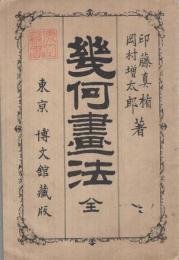 印藤真楯
岡村増太郎 著
幾何畫法 全
東京 博文館藏版